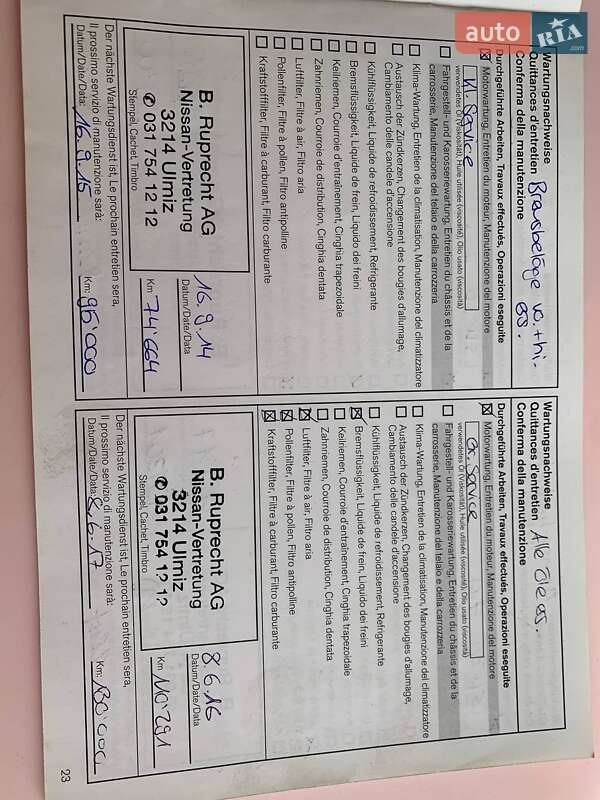 AUTO RIA .com
Wartungsnachweise
Quittances d'entretien
Conferma della manutenzione
Durchgeführte Arbeiten, Travaux effectués, Operazioni eseguite
Motorwartung, Entretien du moteur, Manutenzione del motore
Kl. Service
verwendetes Öl (Viskosität), Huile utilisée (viscosité), Olio usato (viscosità)
Fahrgestell- und Karossenewartung, Entretien du châssis et de la
carrosserie, Manutenzione del telaio e della carrozzeria
Klima-Wartung, Entretien de la climatisation, Manutenzione del climatizzatore
Austausch der Zündkerzen, Changement des bougies d'allumage,
Cambiamento delle candele d'accensione
Kühlflüssigkeit, Liquide de refroidissement, Refrigerante
Bremsflüssigkeit, Liquide de frein, Liquido dei freini
Keilriemen, Courroie d'entraînement, Cinghia trapezoidale
Zahnriemen, Courroie de distribution, Cinghia dentata
Luftfilter, Filtre à air, Filtro aria
Pollenfilter, Filtre à pollen, Filtro antipolline
Kraftstofffilter, Filtre à carburant, Filtro carburante
B. Ruprecht AG
Nissan-Vertretung
3214 Ulmiz
✆ 031 754 12 12
Stempel, Cachet, Timbro
16.9.14
Datum/Date/Data
74'664
Km:
Der nächste Wartungsdienst ist, Le prochain entretien sera,
Il prossimo servizio di manutenzione sarà:
Datum/Date/Data: 16.9.15
Km: 95'000
Wartungsnachweise
Quittances d'entretien
Conferma della manutenzione
Alle
Durchgeführte Arbeiten, Travaux effectués, Operazioni eseguite
Motorwartung, Entretien du moteur, Manutenzione del motore
Gr. Service
verwendetes Öl (Viskosität), Huile utilisée (viscosité), Olio usato (viscosità)
Fahrgestell- und Karossenewartung, Entretien du châssis et de la
carrosserie, Manutenzione del telaio e della carrozzeria
Klima-Wartung, Entretien de la climatisation, Manutenzione del climatizzatore
Austausch der Zündkerzen, Changement des bougies d'allumage,
Cambiamento delle candele d'accensione
Kühlflüssigkeit, Liquide de refroidissement, Refrigerante
Bremsflüssigkeit, Liquide de frein, Liquido dei freini
Keilriemen, Courroie d'entraînement, Cinghia trapezoidale
Zahnriemen, Courroie de distribution, Cinghia dentata
Luftfilter, Filtre à air, Filtro aria
Pollenfilter, Filtre à pollen, Filtro antipolline
Kraftstofffilter, Filtre à carburant, Filtro carburante
B. Ruprecht AG
Nissan-Vertretung
3214 Ulmiz
✆ 031 754 12 12
Stempel, Cachet, Timbro
8.6.16
Datum/Date/Data
110'291
Km:
Der nächste Wartungsdienst ist, Le prochain entretien sera,
Il prossimo servizio di manutenzione sarà:
Datum/Date/Data: 8.6.17
Km: 130'000
23